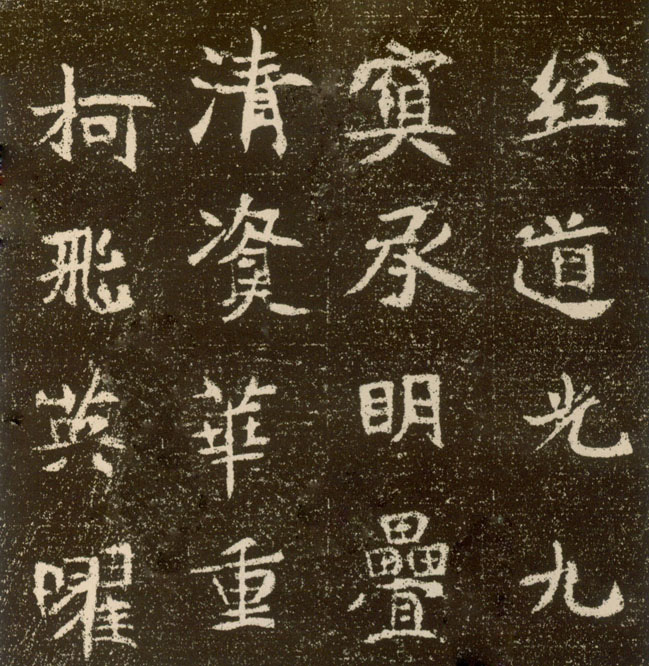 经道光九
寘承明疊
清資華重
柯飛英曜